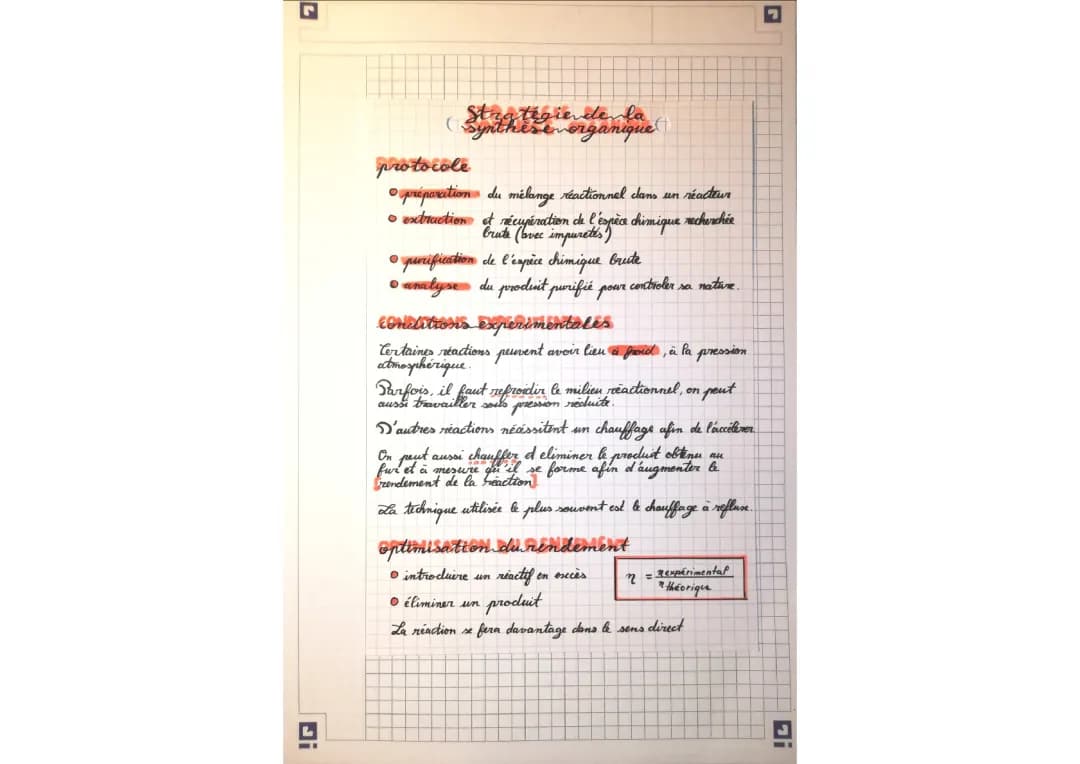 Stratégie de la
synthèse organique
protocole
préparation du mélange réactionnel dans un réacteur
extraction et récupération de l'espèce chimique recherchée
brute (avec impuretés)
purification de l'espèce chimique brute
analyse du produit purifié pour controler sa nature.
conditions experimentales
Certaines réactions peuvent avoir lieu à froid, à la pression
atmosphérique.
Parfois, il faut refroidir le milieu réactionnel, on peut
aussi travailler sous pression réduite.
D'autres réactions nécéssitent un chauffage afin de l'accélérer.
On peut aussi chauffer et eliminer le produit obtenu au
fur et à mesure qu'il se forme afin d'augmenter le
[rendement de la réaction]
La technique utilisée le plus souvent est le chauffage à reflux.
optimisation du rendement
introduire un réactif en excès
η = n expérimental / n théorique
éliminer un produit
La réaction se fera davantage dans le sens direct